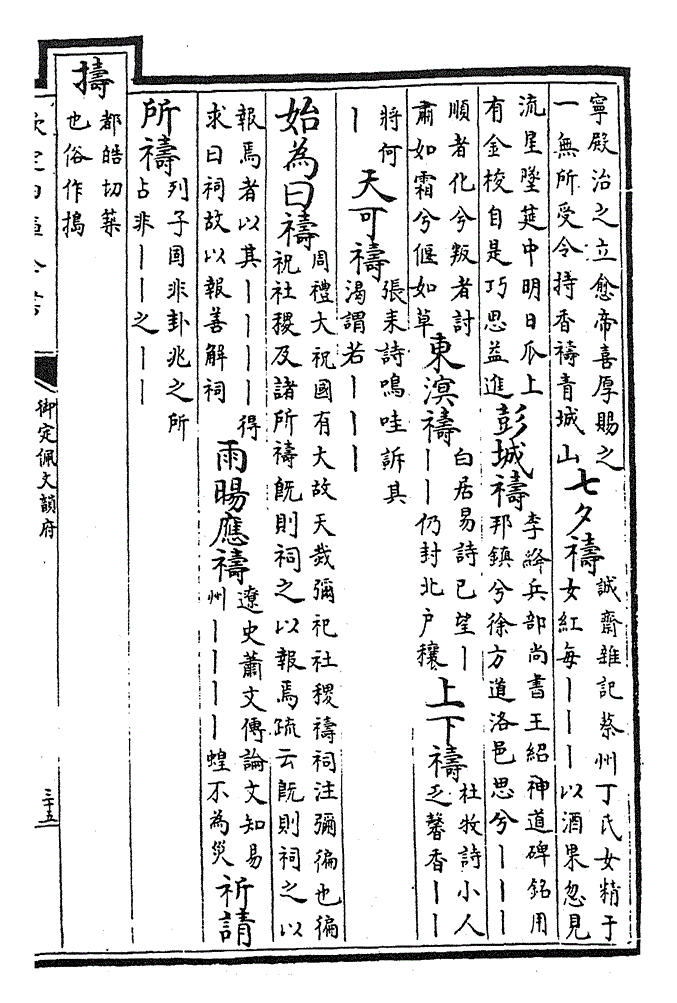 寧殿治之立愈帝喜厚賜之
一無所受令持香禱青城山
七夕禱
誠齋雜記蔡州丁氏女精于
女紅每｜｜｜以酒果忽見
流星墜筵中明日瓜上
有金梭自是巧思益進
彭城禱
李絳兵部尚書王紹神道碑銘用
邦鎮兮徐方道洛邑思兮｜｜｜
順者化兮叛者討
肅如霜兮偃如草
東溟禱
白居易詩已望｜
｜｜仍封北户穰
上下禱
杜牧詩小人
乏馨香｜｜
將何
｜
天可禱
張耒詩鳴哇訴其
渴謂若｜｜｜
始為曰禱
周禮大祝國有大故天烖彌祀社稷禱祠注彌徧也徧
祝社稷及諸所禱旣則祠之以報焉疏云旣則祠之以
報焉者以其｜｜｜｜得
求曰祠故以報善解祠
雨暘應禱
遼史蕭文傳論文知易
州｜｜｜｜蝗不為災
祈請
所禱
列子国非卦兆之所
占非｜｜之｜｜
擣
都皓切築
也俗作搗
御定佩文韻府
三十五